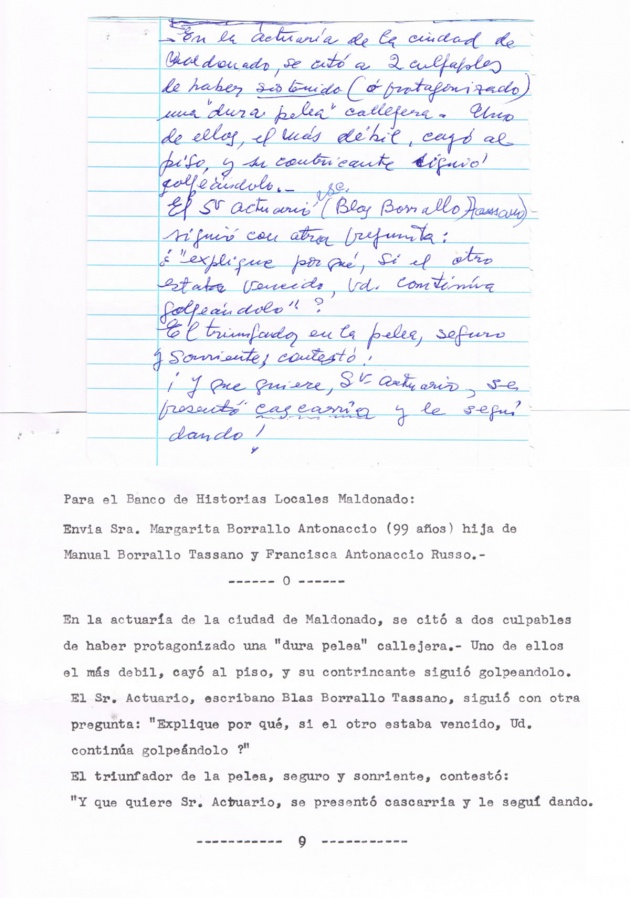 - En la actuaría de la ciudad de
Maldonado, se citó a 2 culpables
de haber sostenido (ó protagonizado)
una "dura pelea" callejera. Uno
de ellos, el más débil, cayó al
piso, y su contricante siguió
golpeándolo.-
El Sr actuario (Blas Borrallo Tassano)-
siguió con otra pregunta:
¿"explique por qué, si el otro
estaba vencido, Vd. continúa
golpeándolo"?
El triunfador en la pelea, seguro
y sonriente, contestó:
¡Y que quiere, Sr actuario, se
presentó cascarria y le seguí
dando!
Para el Banco de Historias Locales Maldonado:
Envia Sra. Margarita Borrallo Antonaccio (99 años) hija de
Manual Borrallo Tassano y Francisca Antonaccio Russo.-
------ O ------
En la actuaría de la ciudad de Maldonado, se citó a dos culpables
de haber protagonizado una "dura pelea" callejera.- Uno de ellos
el más debil, cayó al piso, y su contrincante siguió golpeandolo.
El Sr. Actuario, escribano Blas Borrallo Tassano, siguió con otra
pregunta: "Explique por qué, si el otro estaba vencido, Ud.
continúa golpeándolo ?"
El triunfador de la pelea, seguro y sonriente, contestó:
"Y que quiere Sr. Actuario, se presentó cascarria y le seguí dando.
----------- 9 -----------